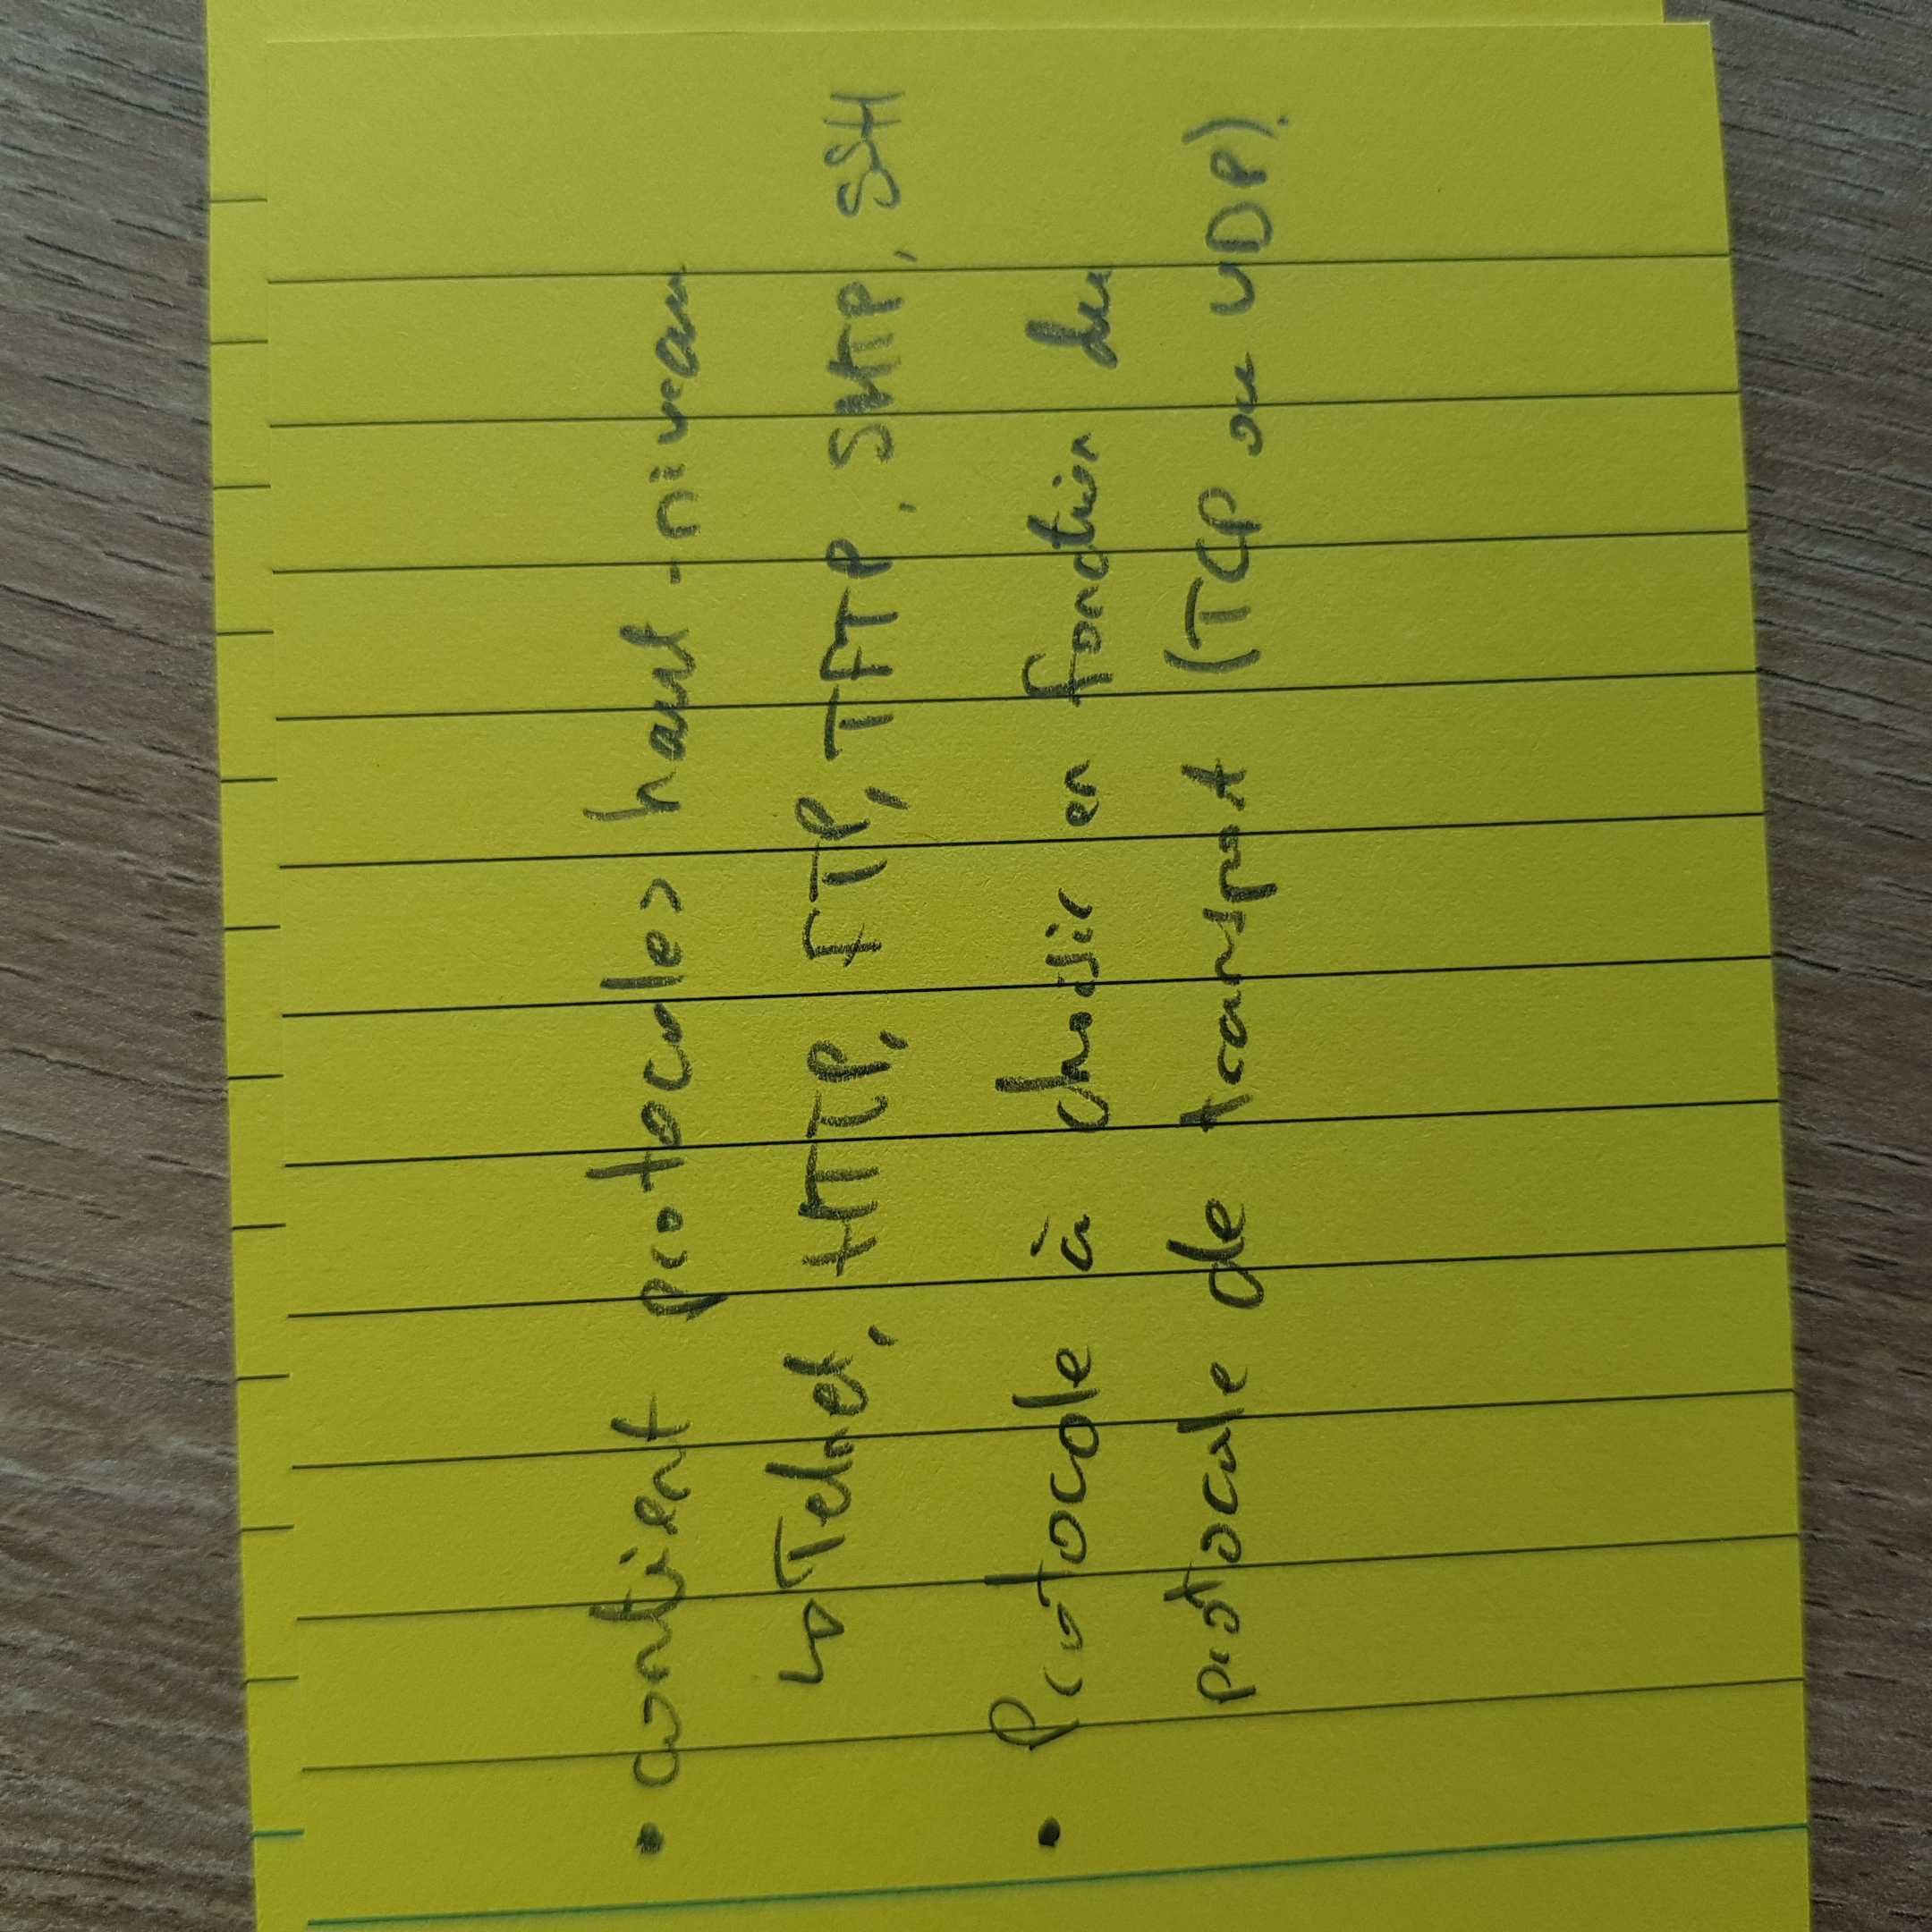 • contient protocoles haut-niveau
↳ Telnet, HTTP, FTP, TFTP, SMTP, SSH
• Protocole à choisir en fonction du
protocole de transport (TCP ou UDP).